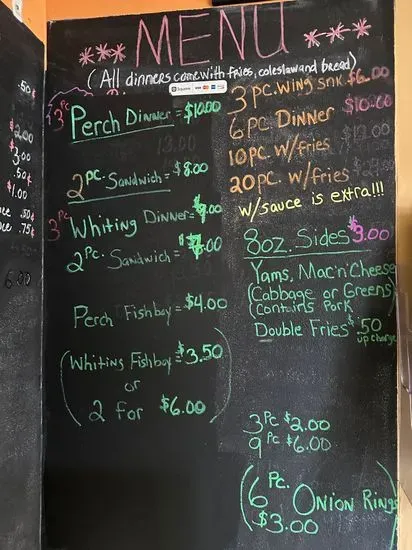 MENU
(All dinners come with fries, coleslaw and bread)
Square VISA
3 Pc Perch Dinner = $10.00
2 Pc. Sandwich = $8.00
3 Pc Whiting Dinner = $9.00
2 Pc. Sandwich = $7.00
Perch Fishboy = $4.00
(Whiting Fishboy = $3.50
or
2 for $6.00)
3 pc. wing snk $6.00
6 pc Dinner $10.00
10 pc w/fries
20 pc. w/fries
w/sauce is extra!!!
8oz. Sides $3.00
Yams, Mac'n'Cheese
(Cabbage or Greens)
(Contains Pork
Double Fries $.50
up charge
3 Pc $2.00
9 Pc $6.00
(6 Pc. Onion Rings
$3.00)
.50¢
$2.00
$3.00
.50¢
$1.00
.50¢
.75¢
6.00